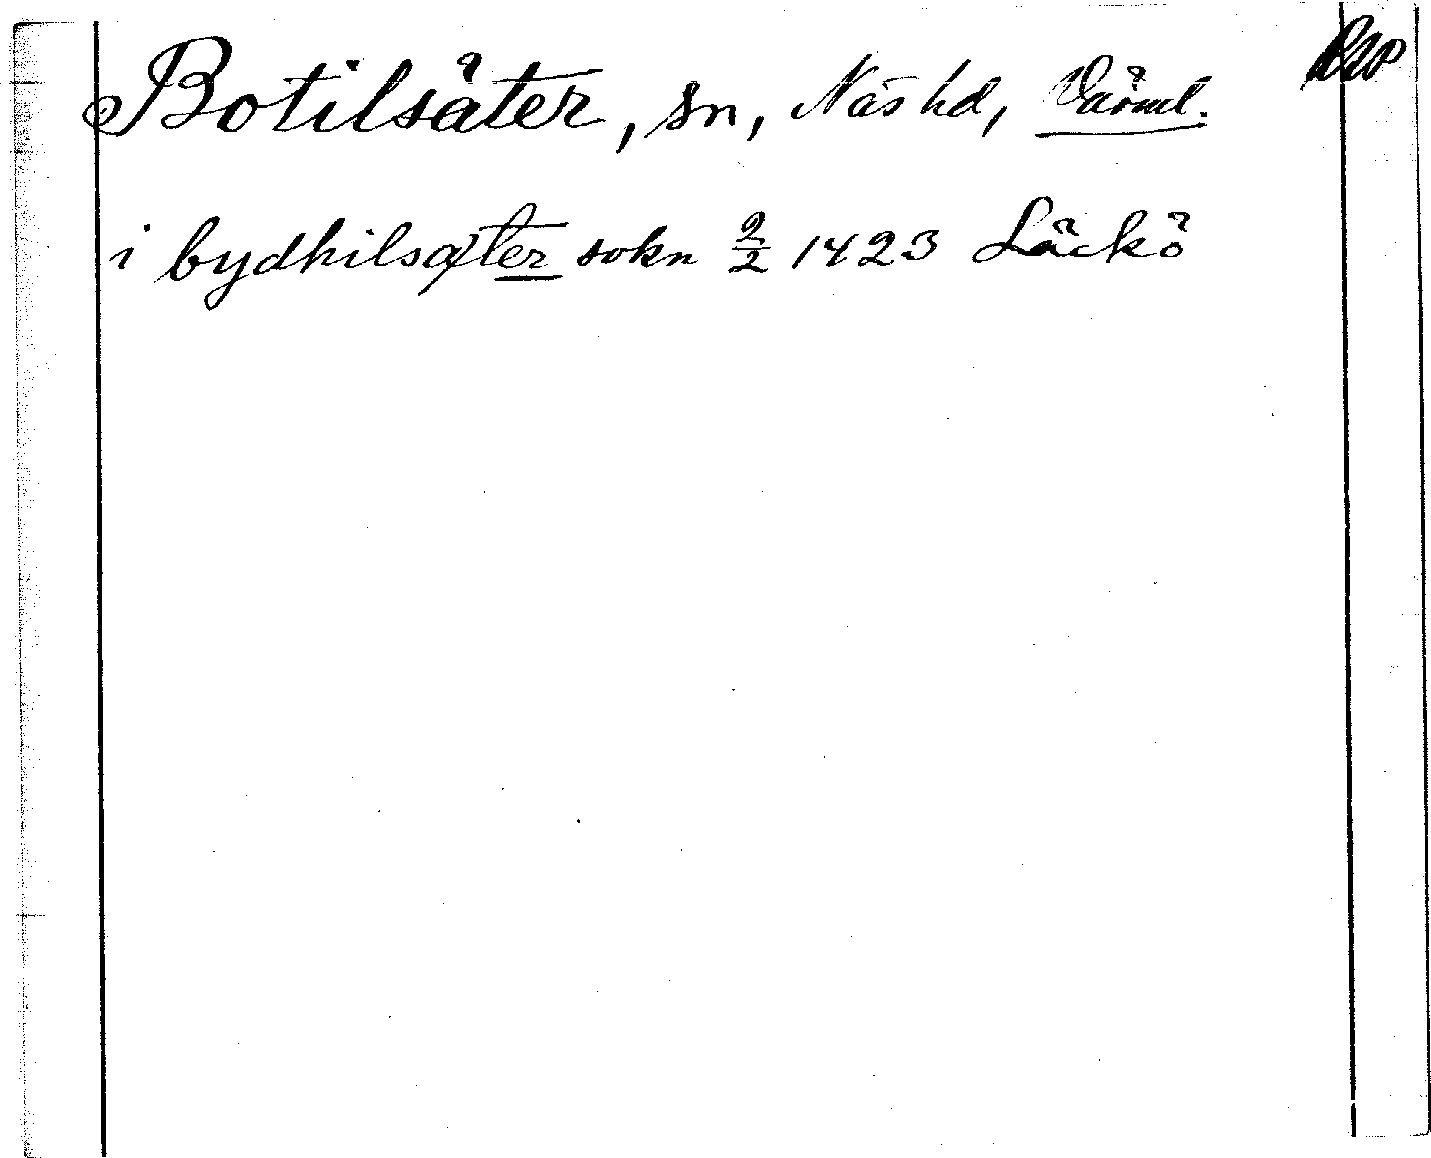 Botilsäter, sn, Näs hd, Värml.
i bydhilsæter sokn 2/2 1423 Läckö